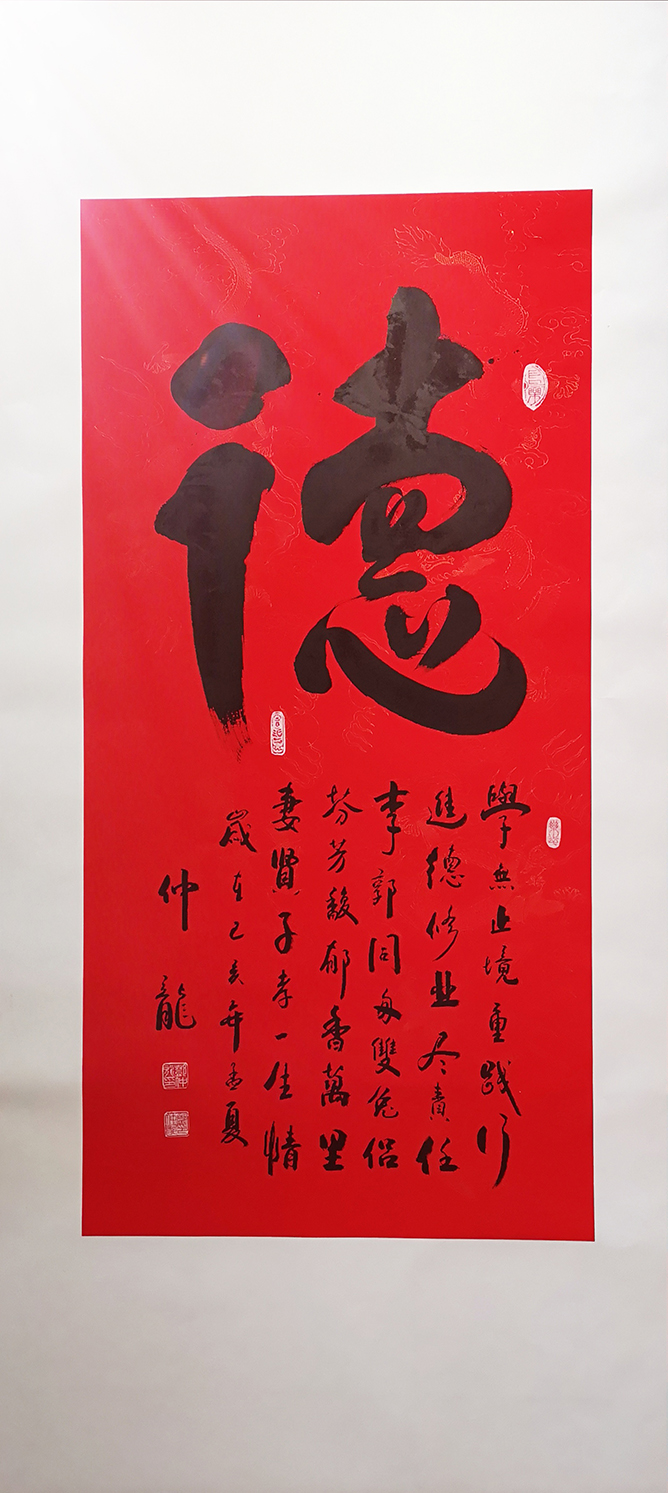 德
學無止境重践行
進德修业尽責任
李郭同舟雙兔侣
芬芳馥郁香萬里
妻賢子孝一生情
歲在己亥年孟夏
仲龍